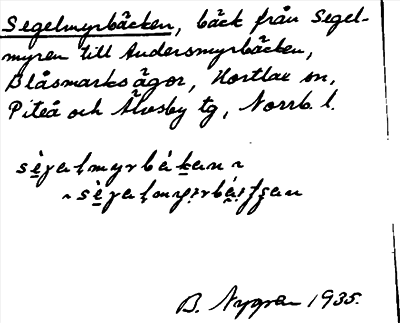 Segelmyrbäcken, bäck från Segel-
myren till Andersmyrbäcken,
Blåsmarks ägor, Hortlax sn,
Piteå och Älvsby tg, Norrb. l.
B. Nygren 1935.